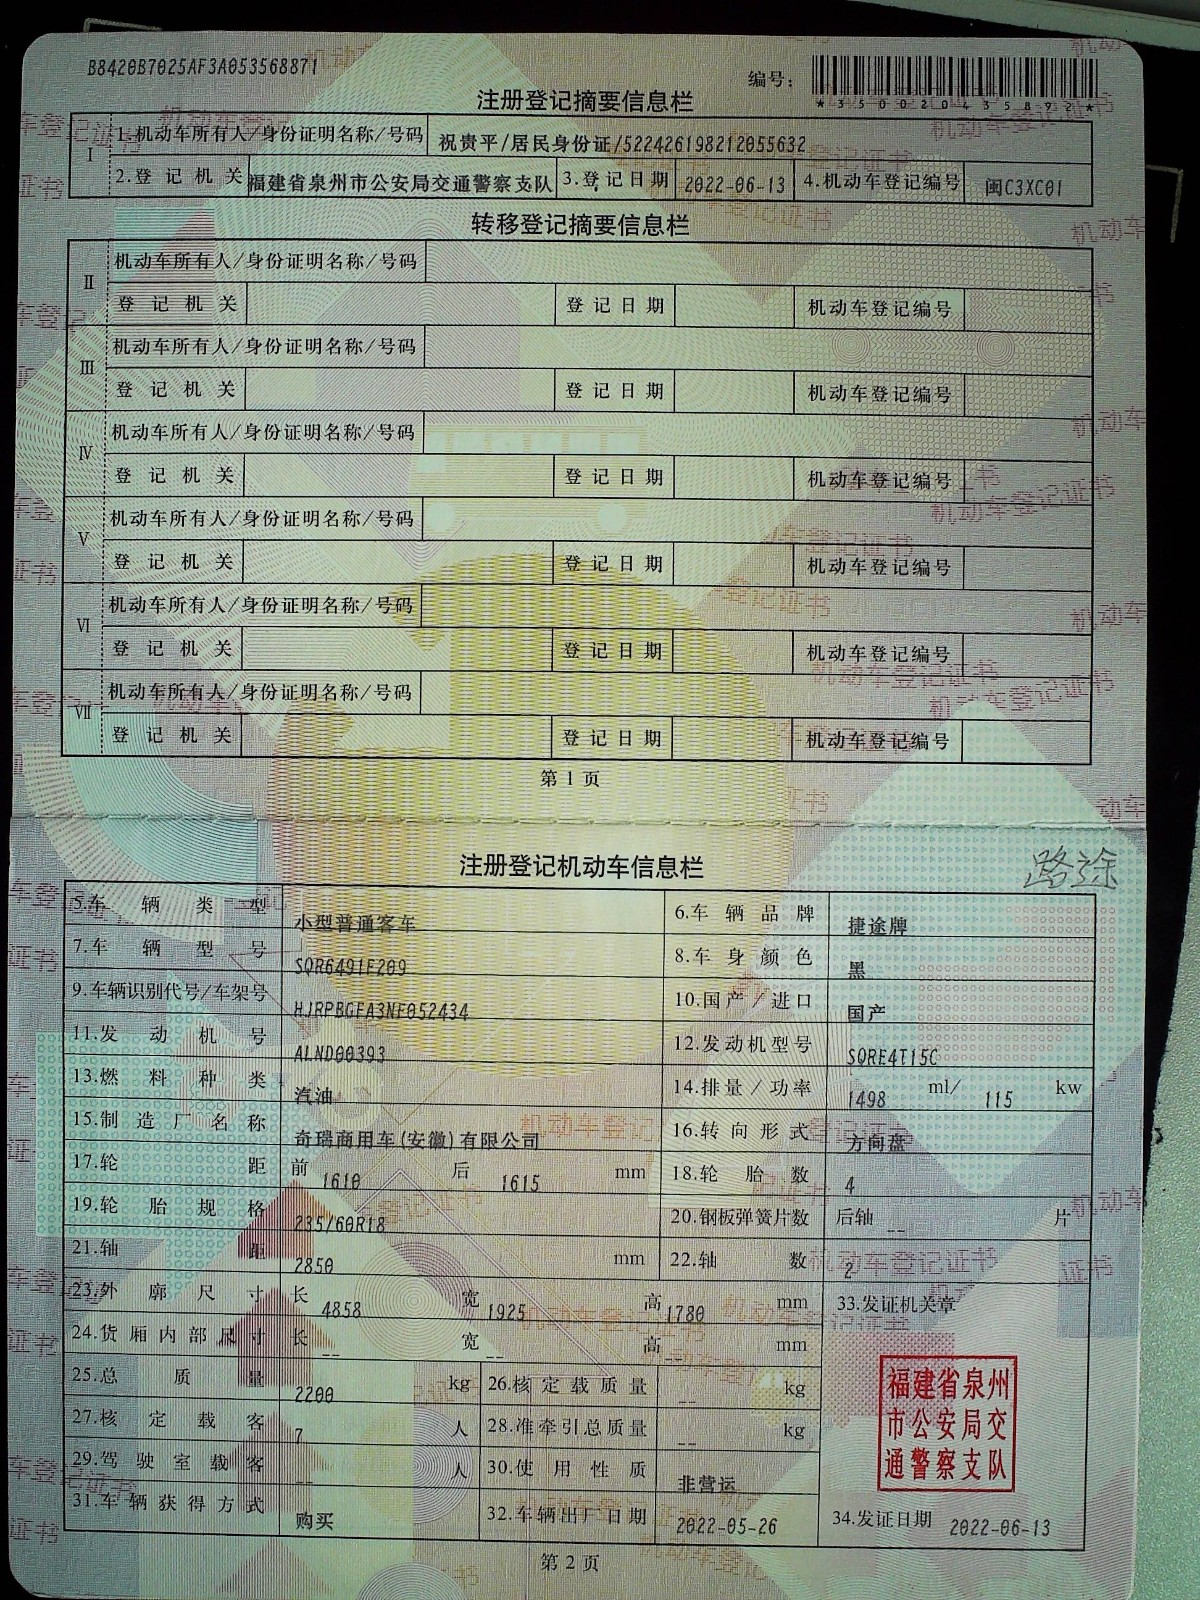 B8420B7025AF3A053568871
编号：
*350020435892*
注册登记摘要信息栏
Ⅰ 1.机动车所有人/身份证明名称/号码 祝贵平/居民身份证/522426198212055632
2.登记机关 福建省泉州市公安局交通警察支队 3.登记日期 2022-06-13 4.机动车登记编号 闽C3XC01
转移登记摘要信息栏
Ⅱ 机动车所有人/身份证明名称/号码
登记机关 登记日期 机动车登记编号
Ⅲ 机动车所有人/身份证明名称/号码
登记机关 登记日期 机动车登记编号
Ⅳ 机动车所有人/身份证明名称/号码
登记机关 登记日期 机动车登记编号
Ⅴ 机动车所有人/身份证明名称/号码
登记机关 登记日期 机动车登记编号
Ⅵ 机动车所有人/身份证明名称/号码
登记机关 登记日期 机动车登记编号
Ⅶ 机动车所有人/身份证明名称/号码
登记机关 登记日期 机动车登记编号
第1页
注册登记机动车信息栏
路途
5.车辆类型 小型普通客车 6.车辆品牌 捷途牌
7.车辆型号 SQR6491F209 8.车身颜色 黑
9.车辆识别代号/车架号 HJRPBGFA3NF052434 10.国产/进口 国产
11.发动机号 ALND00393 12.发动机型号 SQRE4T15C
13.燃料种类 汽油 14.排量/功率 1498 ml/ 115 kw
15.制造厂名称 奇瑞商用车(安徽)有限公司 16.转向形式 方向盘
17.轮距 前 1610 后 1615 mm 18.轮胎数 4
19.轮胎规格 235/60R18 20.钢板弹簧片数 后轴 -- 片
21.轴距 2850 mm 22.轴数 2
23.外廓尺寸 长 4858 宽 1925 高 1780 mm 33.发证机关章
24.货厢内部尺寸 长 -- 宽 -- 高 -- mm
25.总质量 2200 kg 26.核定载质量 -- kg
27.核定载客 7 人 28.准牵引总质量 -- kg
29.驾驶室载客 -- 人 30.使用性质 非营运
31.车辆获得方式 购买 32.车辆出厂日期 2022-05-26 34.发证日期 2022-06-13
福建省泉州
市公安局交
通警察支队
第2页